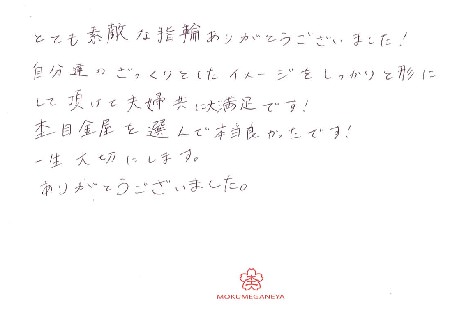 とても素敵な指輪ありがとうございました!
自分達のざっくりとしたイメージをしっかりと形に
して頂けて夫婦共に大満足です!
杢目金屋を選んで本当良かったです!
一生大切にします。
ありがとうございました。
MOKUMEGANEYA